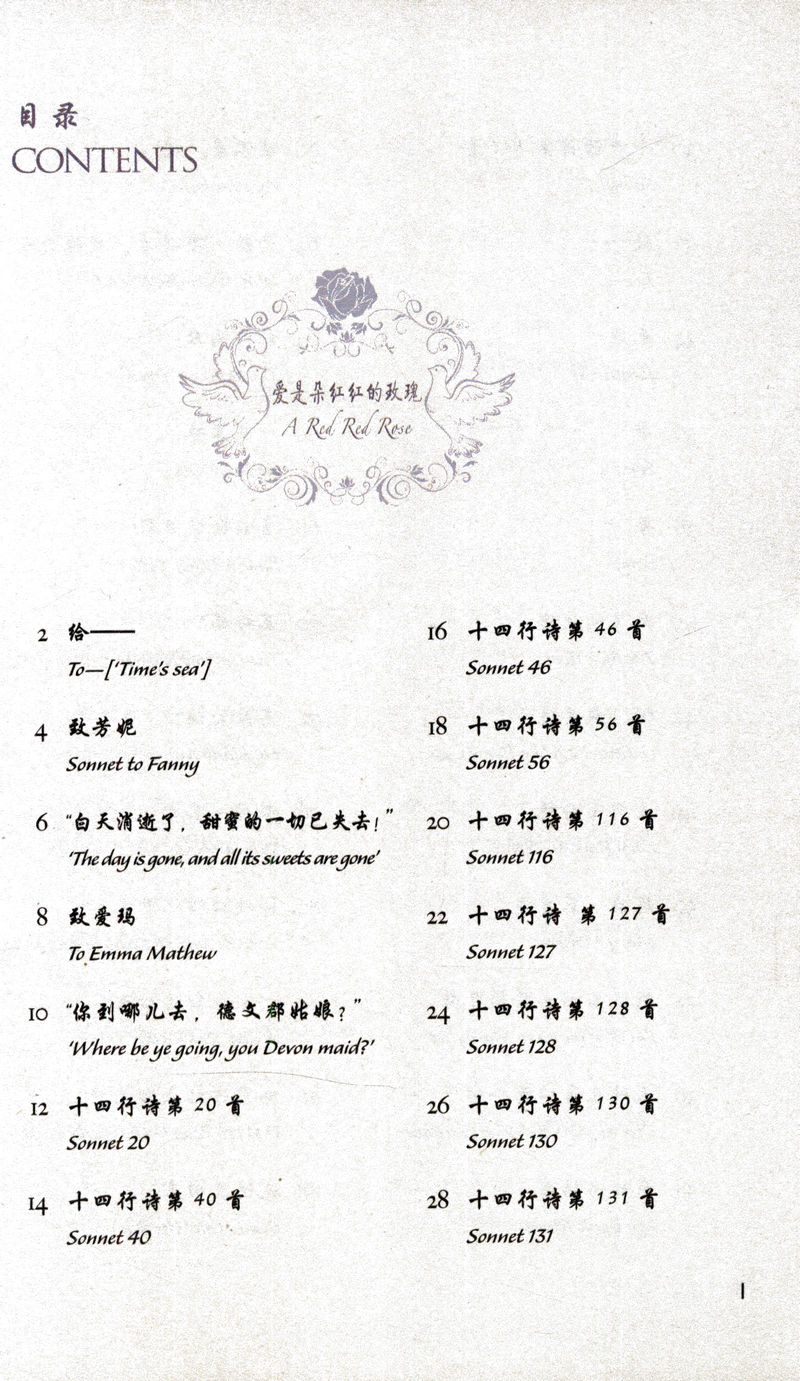 目录
CONTENTS
爱是朵红红的玫瑰
A Red Red Rose
2 给——
To—['Time's sea']
4 致芳妮
Sonnet to Fanny
6 “白天消逝了，甜蜜的一切已失去！”
'The day is gone, and all its sweets are gone'
8 致爱玛
To Emma Mathew
10 “你到哪儿去，德文郡姑娘？”
'Where be ye going, you Devon maid?'
12 十四行诗第 20 首
Sonnet 20
14 十四行诗第 40 首
Sonnet 40
16 十四行诗第 46 首
Sonnet 46
18 十四行诗第 56 首
Sonnet 56
20 十四行诗第 116 首
Sonnet 116
22 十四行诗 第 127 首
Sonnet 127
24 十四行诗第 128 首
Sonnet 128
26 十四行诗第 130 首
Sonnet 130
28 十四行诗第 131 首
Sonnet 131
1